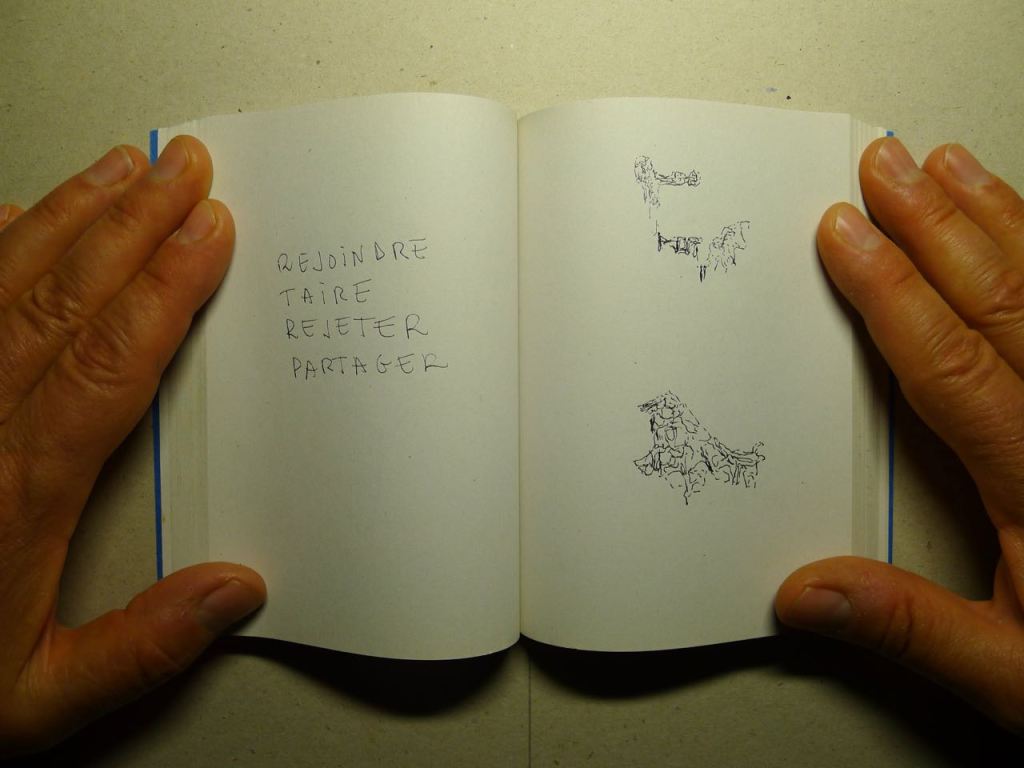 REJOINDRE
TAIRE
REJETER
PARTAGER